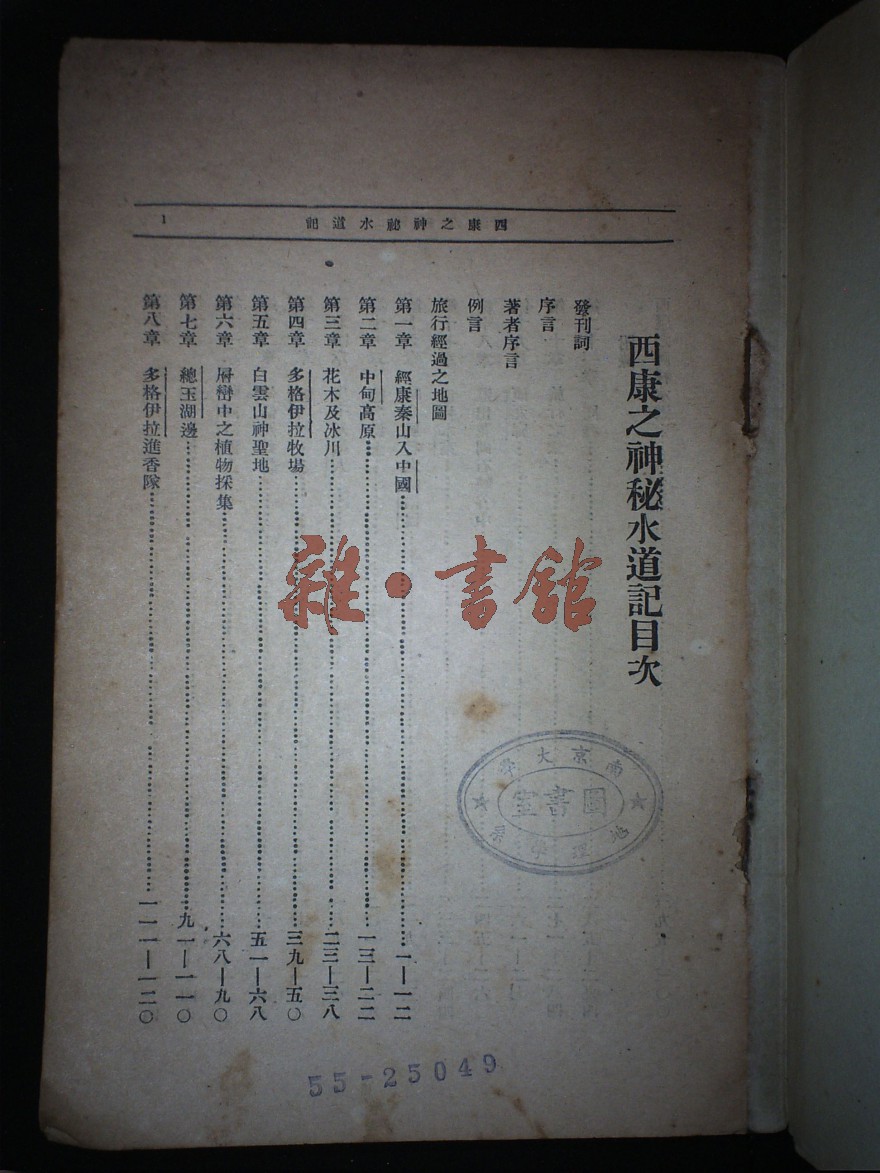 西康之神祕水道記
1
西康之神秘水道記目次
發刊詞
序言
著者序言
例言
旅行經過之地圖
第一章 經康秦山入中國……一—一二
第二章 中甸高原……一三—二二
第三章 花木及冰川……二三—三八
第四章 多格伊拉牧場……三九—五〇
第五章 白雲山神聖地……五一—六八
第六章 層巒中之植物採集……六八—九〇
第七章 總玉湖邊……九一—一一〇
第八章 多格伊拉進香隊……一一一—一二〇
雜·書館
南京大學
圖書室
地理學系
55-25049